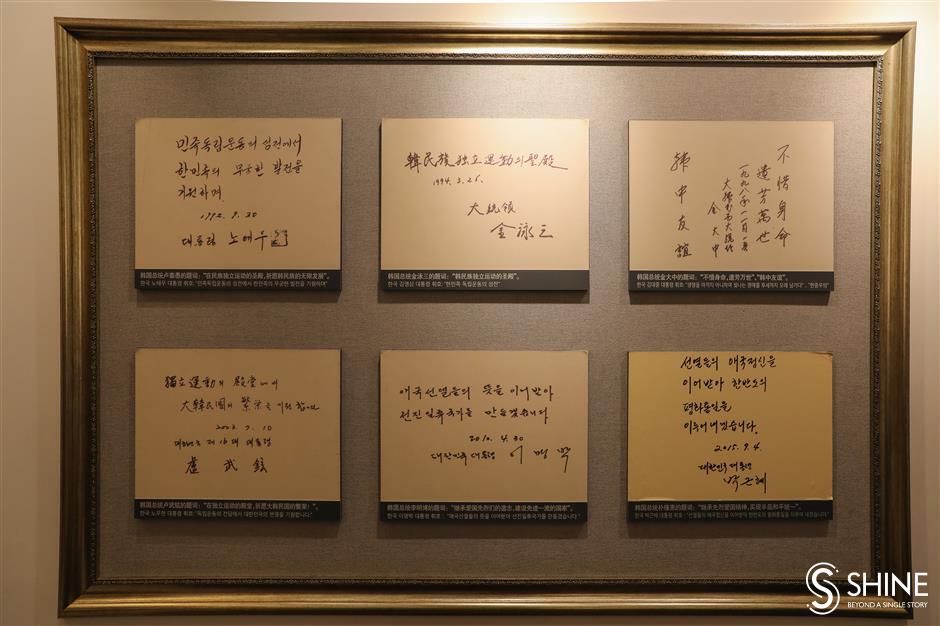 민족독립운동의 성전에서
한민족의 무궁한 발전을
기원하며
1992. 9. 30
대통령 노태우
韩国总统卢泰愚的题词：“在民族独立运动的圣殿，祈愿韩民族的无限发展”。
한국 노태우 대통령 휘호: “민족독립운동의 성전에서 한민족의 무궁한 발전을 기원하며”
韓民族獨立運動의聖殿
1994. 3. 26.
大統領
金泳三
韩国总统金泳三的题词：“韩民族独立运动的圣殿”。
한국 김영삼 대통령 휘호: “한민족 독립운동의 성전”
不惜身命
遺芳萬世
一九九八年一一月一
大韓民國大統領
金大中
韓中友誼
韩国总统金大中的题词：“不惜身命，遗芳万世”、“韩中友谊”。
한국 김대중 대통령 휘호: “생명을 아끼지 아니하며 빛나는 명예를 후세까지 오래 남기다”，“한중우의”
獨立運動의 殿堂에서
大韓民國의 繁榮을 기원합니다
2003. 7. 10
대한민국 제16대 대통령
盧武鉉
韩国总统卢武铉的题词：“在独立运动的殿堂，祈愿大韩民国的繁荣！”。
한국 노무현 대통령 휘호: “독립운동의 전당에서 대한민국의 번영을 기원합니다”
애국선열들의 뜻을 이어받아
선진일류국가를 만들겠습니다
2010. 4. 30
대한민국 대통령 이명박
韩国总统李明博的题词：“继承爱国先烈们的遗志，建设先进一流的国家”。
한국 이명박 대통령 휘호: “애국선열들의 뜻을 이어받아 선진일류국가를 만들겠습니다”
선열들의 애국정신을
이어받아 한반도의
평화통일을
이루어내겠습니다.
2015. 9. 4.
대한민국 대통령
박근혜
韩国总统朴槿惠的题词：“继承先烈爱国精神，实现半岛和平统一”。
한국 박근혜 대통령 휘호: “선열들의 애국정신을 이어받아 한반도의 평화통일을 이루어 내겠습니다”
SHINE
BEYOND A SINGLE STORY